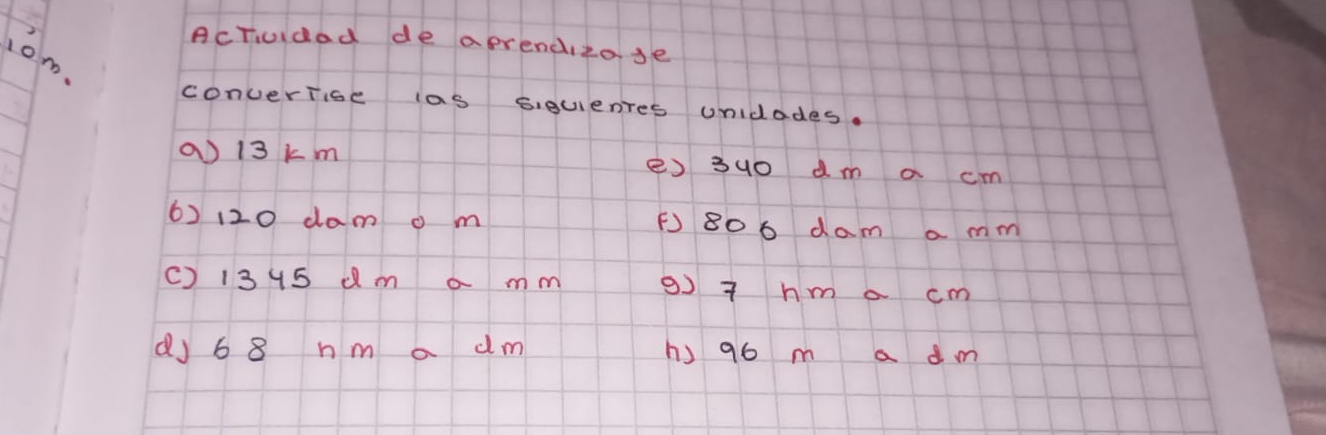 10m.
Actividad de aprendizaje
convertise las siguientes unidades.
a) 13 km
b) 120 dam a m
c) 1345 dm a mm
d) 68 hm a dm
e) 340 dm a cm
f) 806 dam a mm
g) 7 hm a cm
h) 96 m a dm